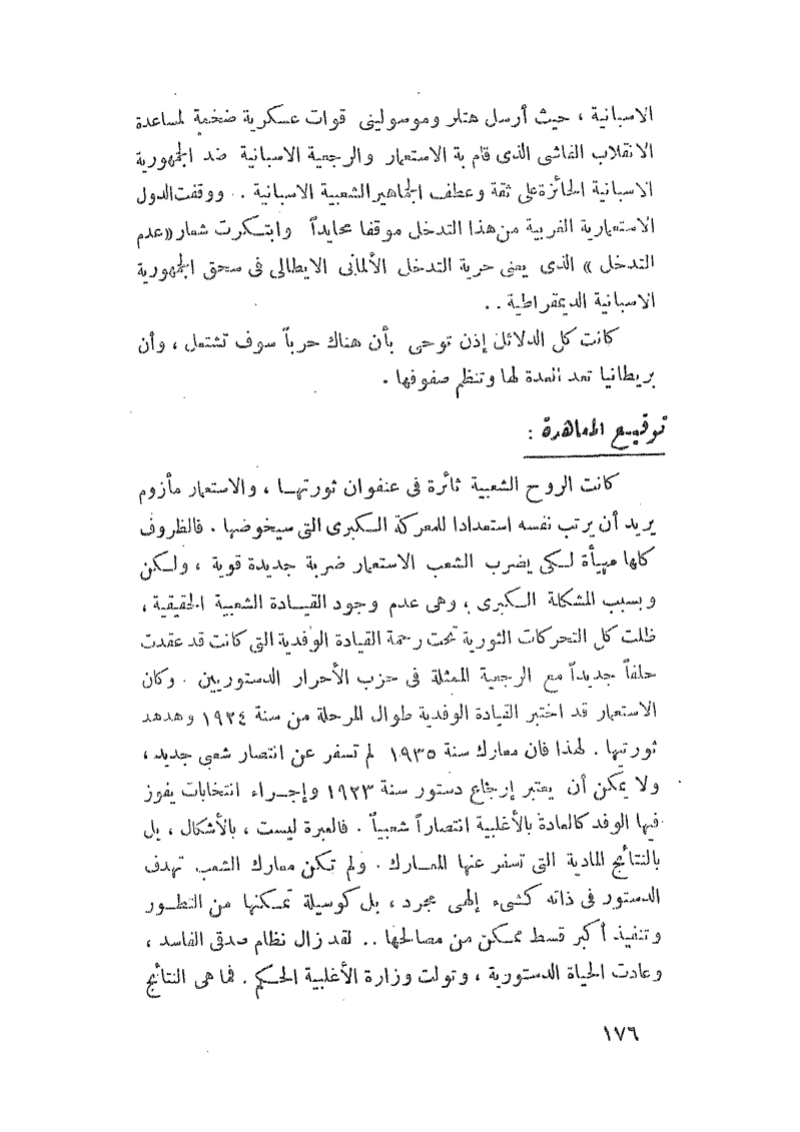 الاسبانية ، حيث أرسل هتلر وموسولينى قوات عسكرية ضخمة لمساعدة
الانقلاب الفاشى الذى قام بة الاستعمار والرجعية الاسبانية ضد الجمهورية
الاسبانية الحائزة على ثقة وعطف الجماهير الشعبية الاسبانية . ووقفت الدول
الاستعمارية الغربية من هذا التدخل موقفا محايداً وابتكرت شعار «عدم
التدخل » الذى يعنى حرية التدخل الألمانى الايطالى فى سحق الجمهورية
الاسبانية الديمقراطية . .
كانت كل الدلائل إذن توحى بأن هناك حرباً سوف تشتعل ، وأن
بريطانيا تعد العدة لها وتنظم صفوفها .
توقيع المعاهدة :
كانت الروح الشعبية ثائرة فى عنفوان ثورتها ، والاستعمار مأزوم
يريد أن يرتب نفسه استعدادا للمعركة الكبرى التى سيخوضها . فالظروف
كلها مهيأة لكى يضرب الشعب الاستعمار ضربة جديدة قوية ، ولكن
وبسبب المشكلة الكبرى ، وهى عدم وجود القيادة الشعبية الحقيقية ،
ظلت كل التحركات الثورية تحت رحمة القيادة الوفدية التى كانت قد عقدت
حلفاً جديداً مع الرجعية الممثلة فى حزب الأحرار الدستوريين . وكان
الاستعمار قد اختبر القيادة الوفدية طوال المرحلة من سنة ١٩٢٤ وهدهد
ثورتها . لهذا فان معارك سنة ١٩٣٥ لم تسفر عن انتصار شعبى جديد ،
ولا يمكن أن يعتبر إرجاع دستور سنة ١٩٢٣ وإجراء انتخابات يفوز
فيها الوفد كالعادة بالأغلبية انتصاراً شعبياً . فالعبرة ليست ، بالأشكال ، بل
بالنتائج المادية التى تسفر عنها المعارك . ولم تكن معارك الشعب تهدف
الدستور فى ذاته كشىء إلهى مجرد ، بل كوسيلة تمكنها من التطور
وتنفيذ أكبر قسط ممكن من مصالحها . . لقد زال نظام صدقى الفاسد ،
وعادت الحياة الدستورية ، وتولت وزارة الأغلبية الحكم . فما هى النتائج
١٧٦